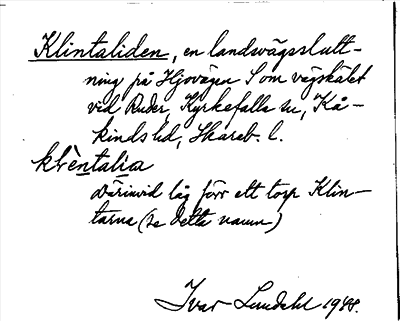 Klintaliden, en landsvägsslutt-
ning på Hjovägen S om vägskälet
vid Ruder, Kyrkefalla sn, Kå-
kinds hd, Skarab. l.
klèntalia
Därinvid låg förr ett torp Klin-
tarna (se detta namn)
Ivar Lundahl 1948.